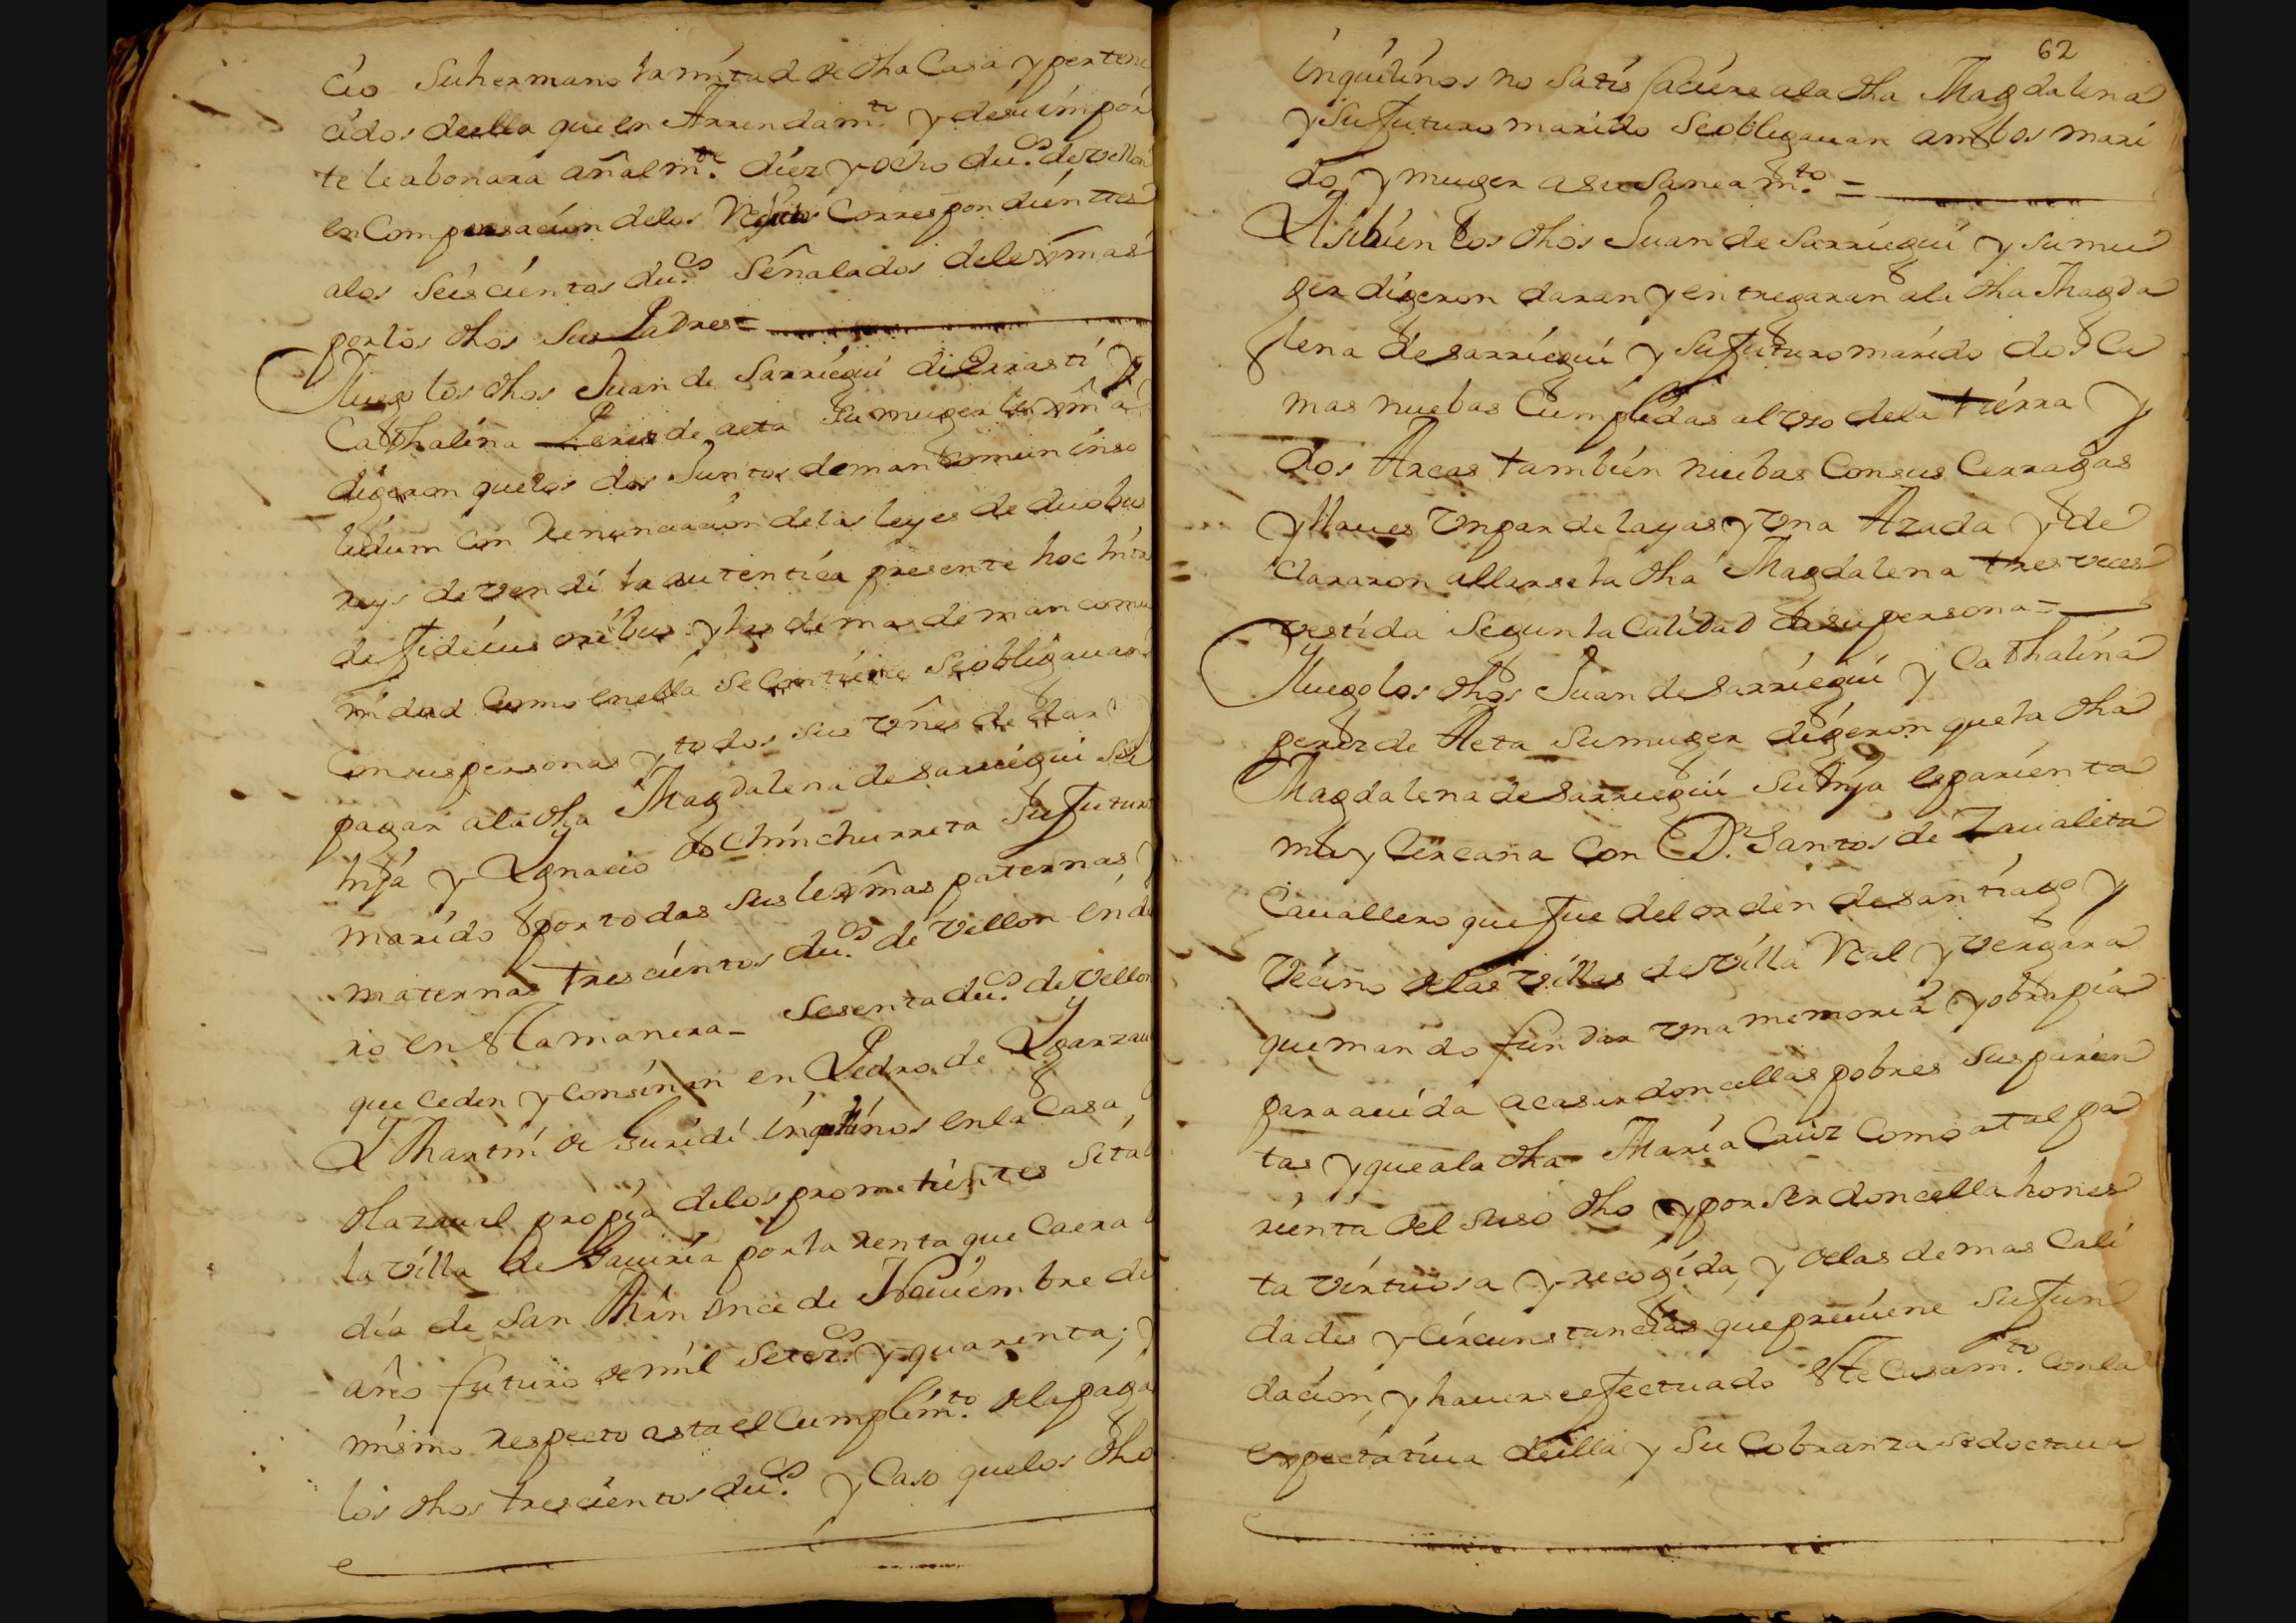 cio Suhermano la mitad de dha Casa y pertene
cidos deella que en Arrendam.to y desu impor
te le abonara añalm.te diez y ocho du.os devellon
en Compensacion delos Reditos Correspondientes
alos Seiscientos du.os Señalados delexmas
porlos dhos Sus Padres=
Iluego los dhos Juan de Sarriegui di Errasti y
Cathalina Perez de aeta Su muger lexma
digeron quelos dos Juntos demancomun inso
lidum Con Renunciacion delas leyes de duobus
reys de vendi la autentica presente hoc hita
de fideius oribus y las demas de mancomu
nidad Como enella Se Contiene Seobligauan
Consus personas y todos sus vñes de dar
pagar ala dha Magdalena de Sarriegui Su
hija y Ygnacio de Chinchurreta Su futuro
marido por todas Sus lexmas paternas y
maternas trescientos du.os de Vellon en di
ro en Sta manera- Sesenta du.os de Vellon
que Ceden y Consinan en Pedro de Ygarzau
Y Martin de Guridi inquilinos enla Casa
Olazaual propia delos prometientes Sita
la villa de Gauiria porla Renta que Caera
dia de San Min Once de Nouiembre de
año futuro de mil Setez.os y quarenta; y
mismo Respecto asta el Cumplim.to dela paga
los dhos trescientos du.os y Caso quelos dho
62
inquilinos no Satis faciere ala dha Magdalena
y Su futuro marido Seobligauan ambos mari
do y muger a su Saneam.to =
Asibien los dhos Juan de Sarriegui y Sumu
ger digeron daran y entregaran ala dha Magda
lena de Sarriegui y Su futuro marido dos Ca
mas nuebas Cumplidas al vso dela tierra y
dos Arcas tambien nuebas Consus Cerragas
y llaues Vnpar de layas y Vna Azada y de
clararon allarse la dha Magdalena tres veces
vestida Segun la Calidad desu persona=
Iluego los dhos Juan de Sarriegui y Cathalina
perez de Aeta Sumuger digeron que la dha
Magdalena de Sarriegui Su hija es parienta
muy Cercana Con D.n Santos de Zaualeta
Cauallero que fue del orden de Santiago y
Vecino delas Villas de Villa Real y Vergara
que mando fundar Vna memoria y obra pia
para auida acasar doncellas pobres Sus parien
tas y que ala dha Maria Cruz Como atal pa
rienta del Suso dho y por Ser doncella hones
ta Virtuosa y recogida y delas demas Cali
dades y Circunstancias que preuiene Su fun
dacion, y hauerse efectuado Ste Casam.to Conla
expectatiua deella y Su Cobranza Sedoctaua